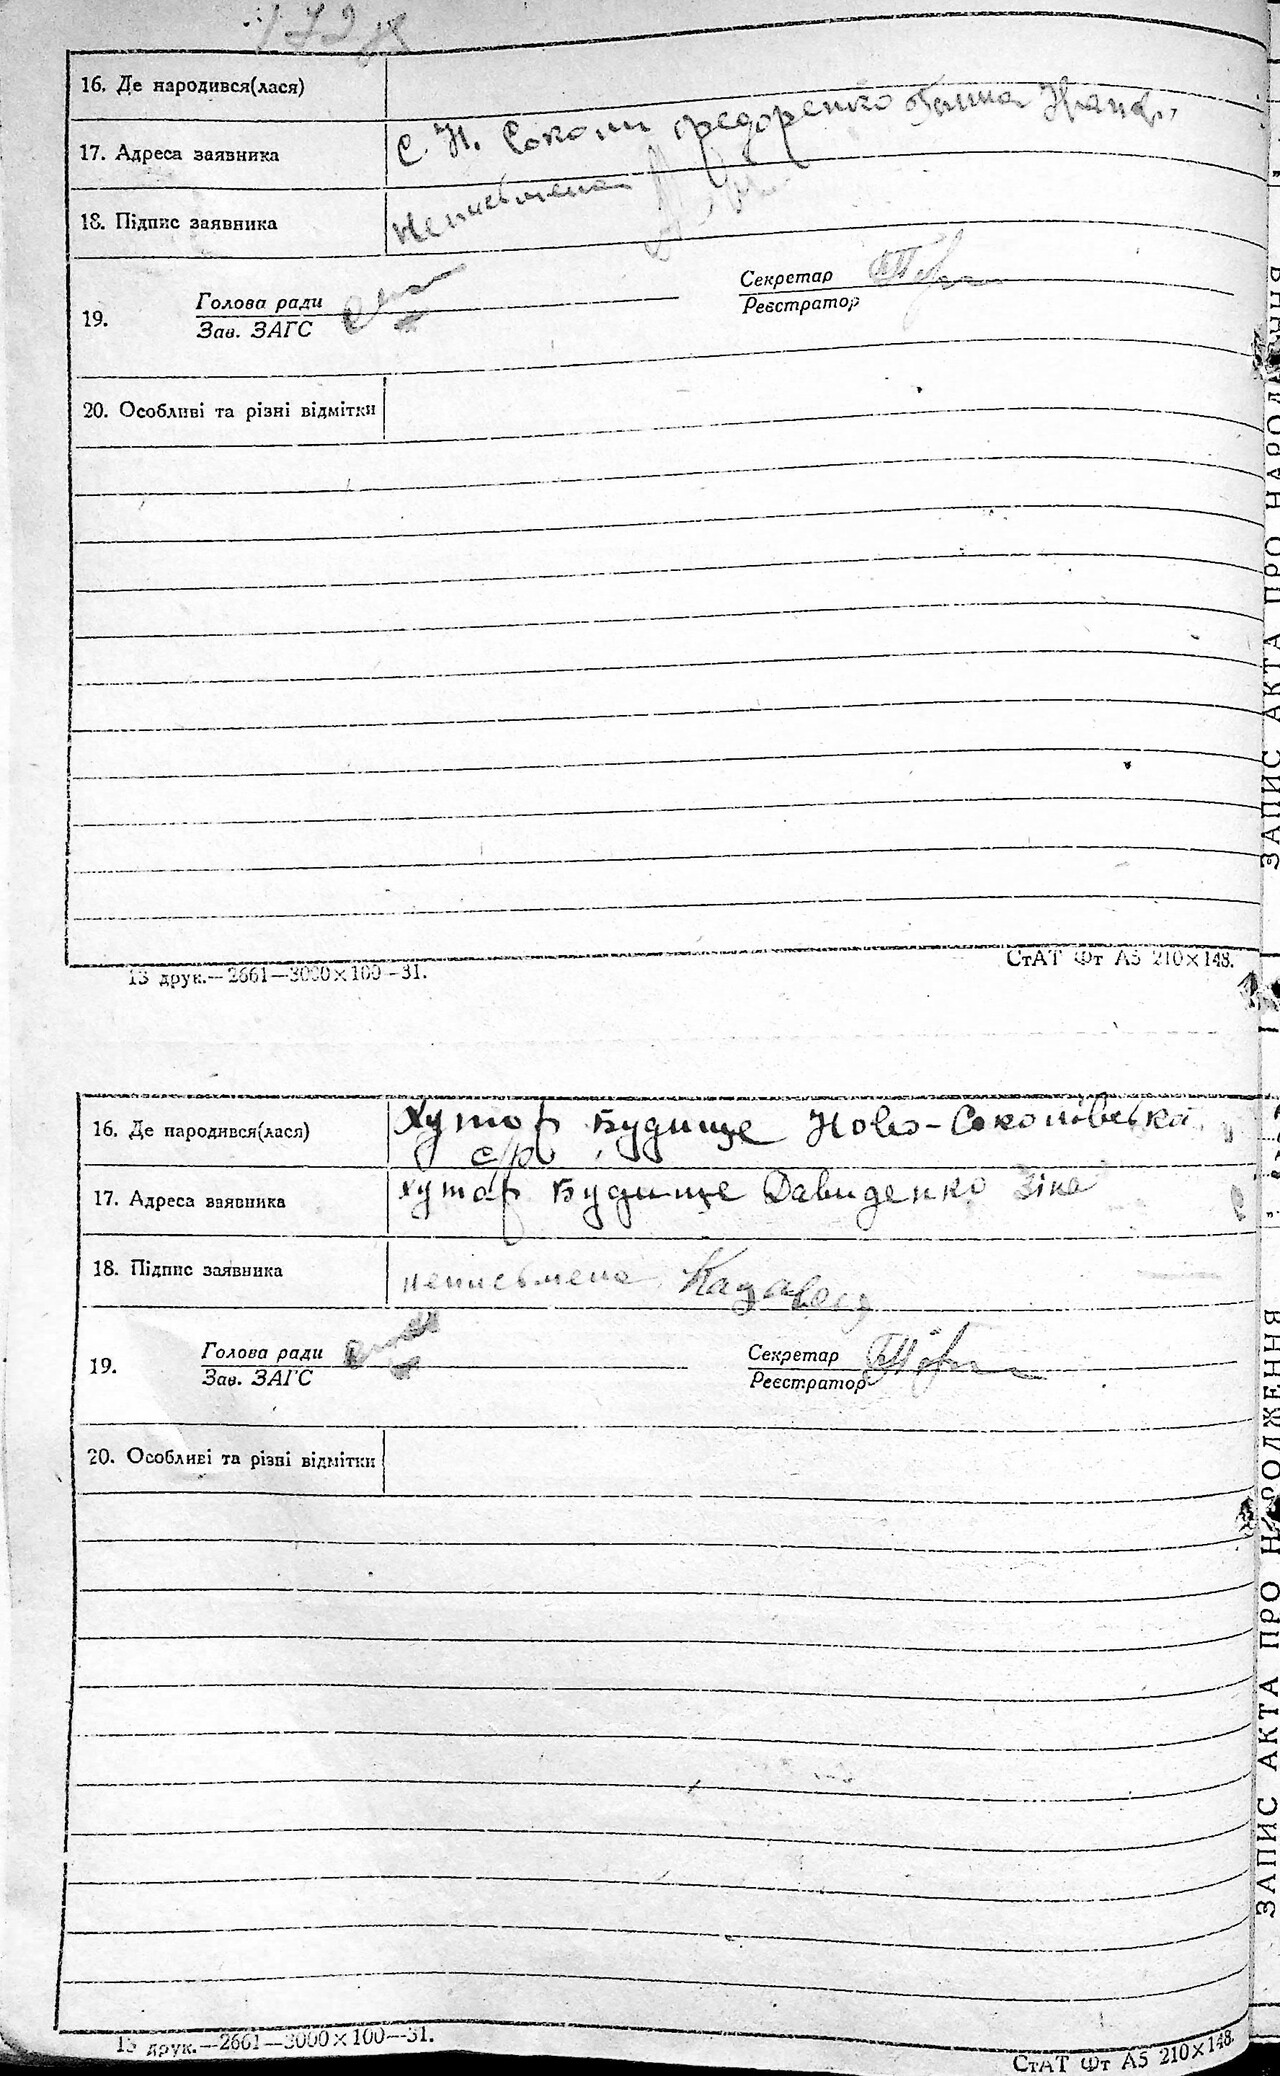 16. Де народився(лася)
17. Адреса заявника С. Н. Соколи Федоренко
18. Підпис заявника Неписьмена
19. Голова ради Секретар
Зав. ЗАГС Реєстратор
20. Особливі та різні відмітки
13 друк.—2661—3000×100—31. СтАТ Фт А5 210×148.
16. Де народився(лася) Хутор Будище Ново-Соколівська
с/р
17. Адреса заявника хутор Будище Давиденко Зіна
18. Підпис заявника неписьмена
19. Голова ради Секретар
Зав. ЗАГС Реєстратор
20. Особливі та різні відмітки
13 друк.—2661—3000×100—31. СтАТ Фт А5 210×148.
ЗАПИС АКТА ПРО НАРОДЖЕННЯ
ЗАПИС АКТА ПРО НАРОДЖЕННЯ